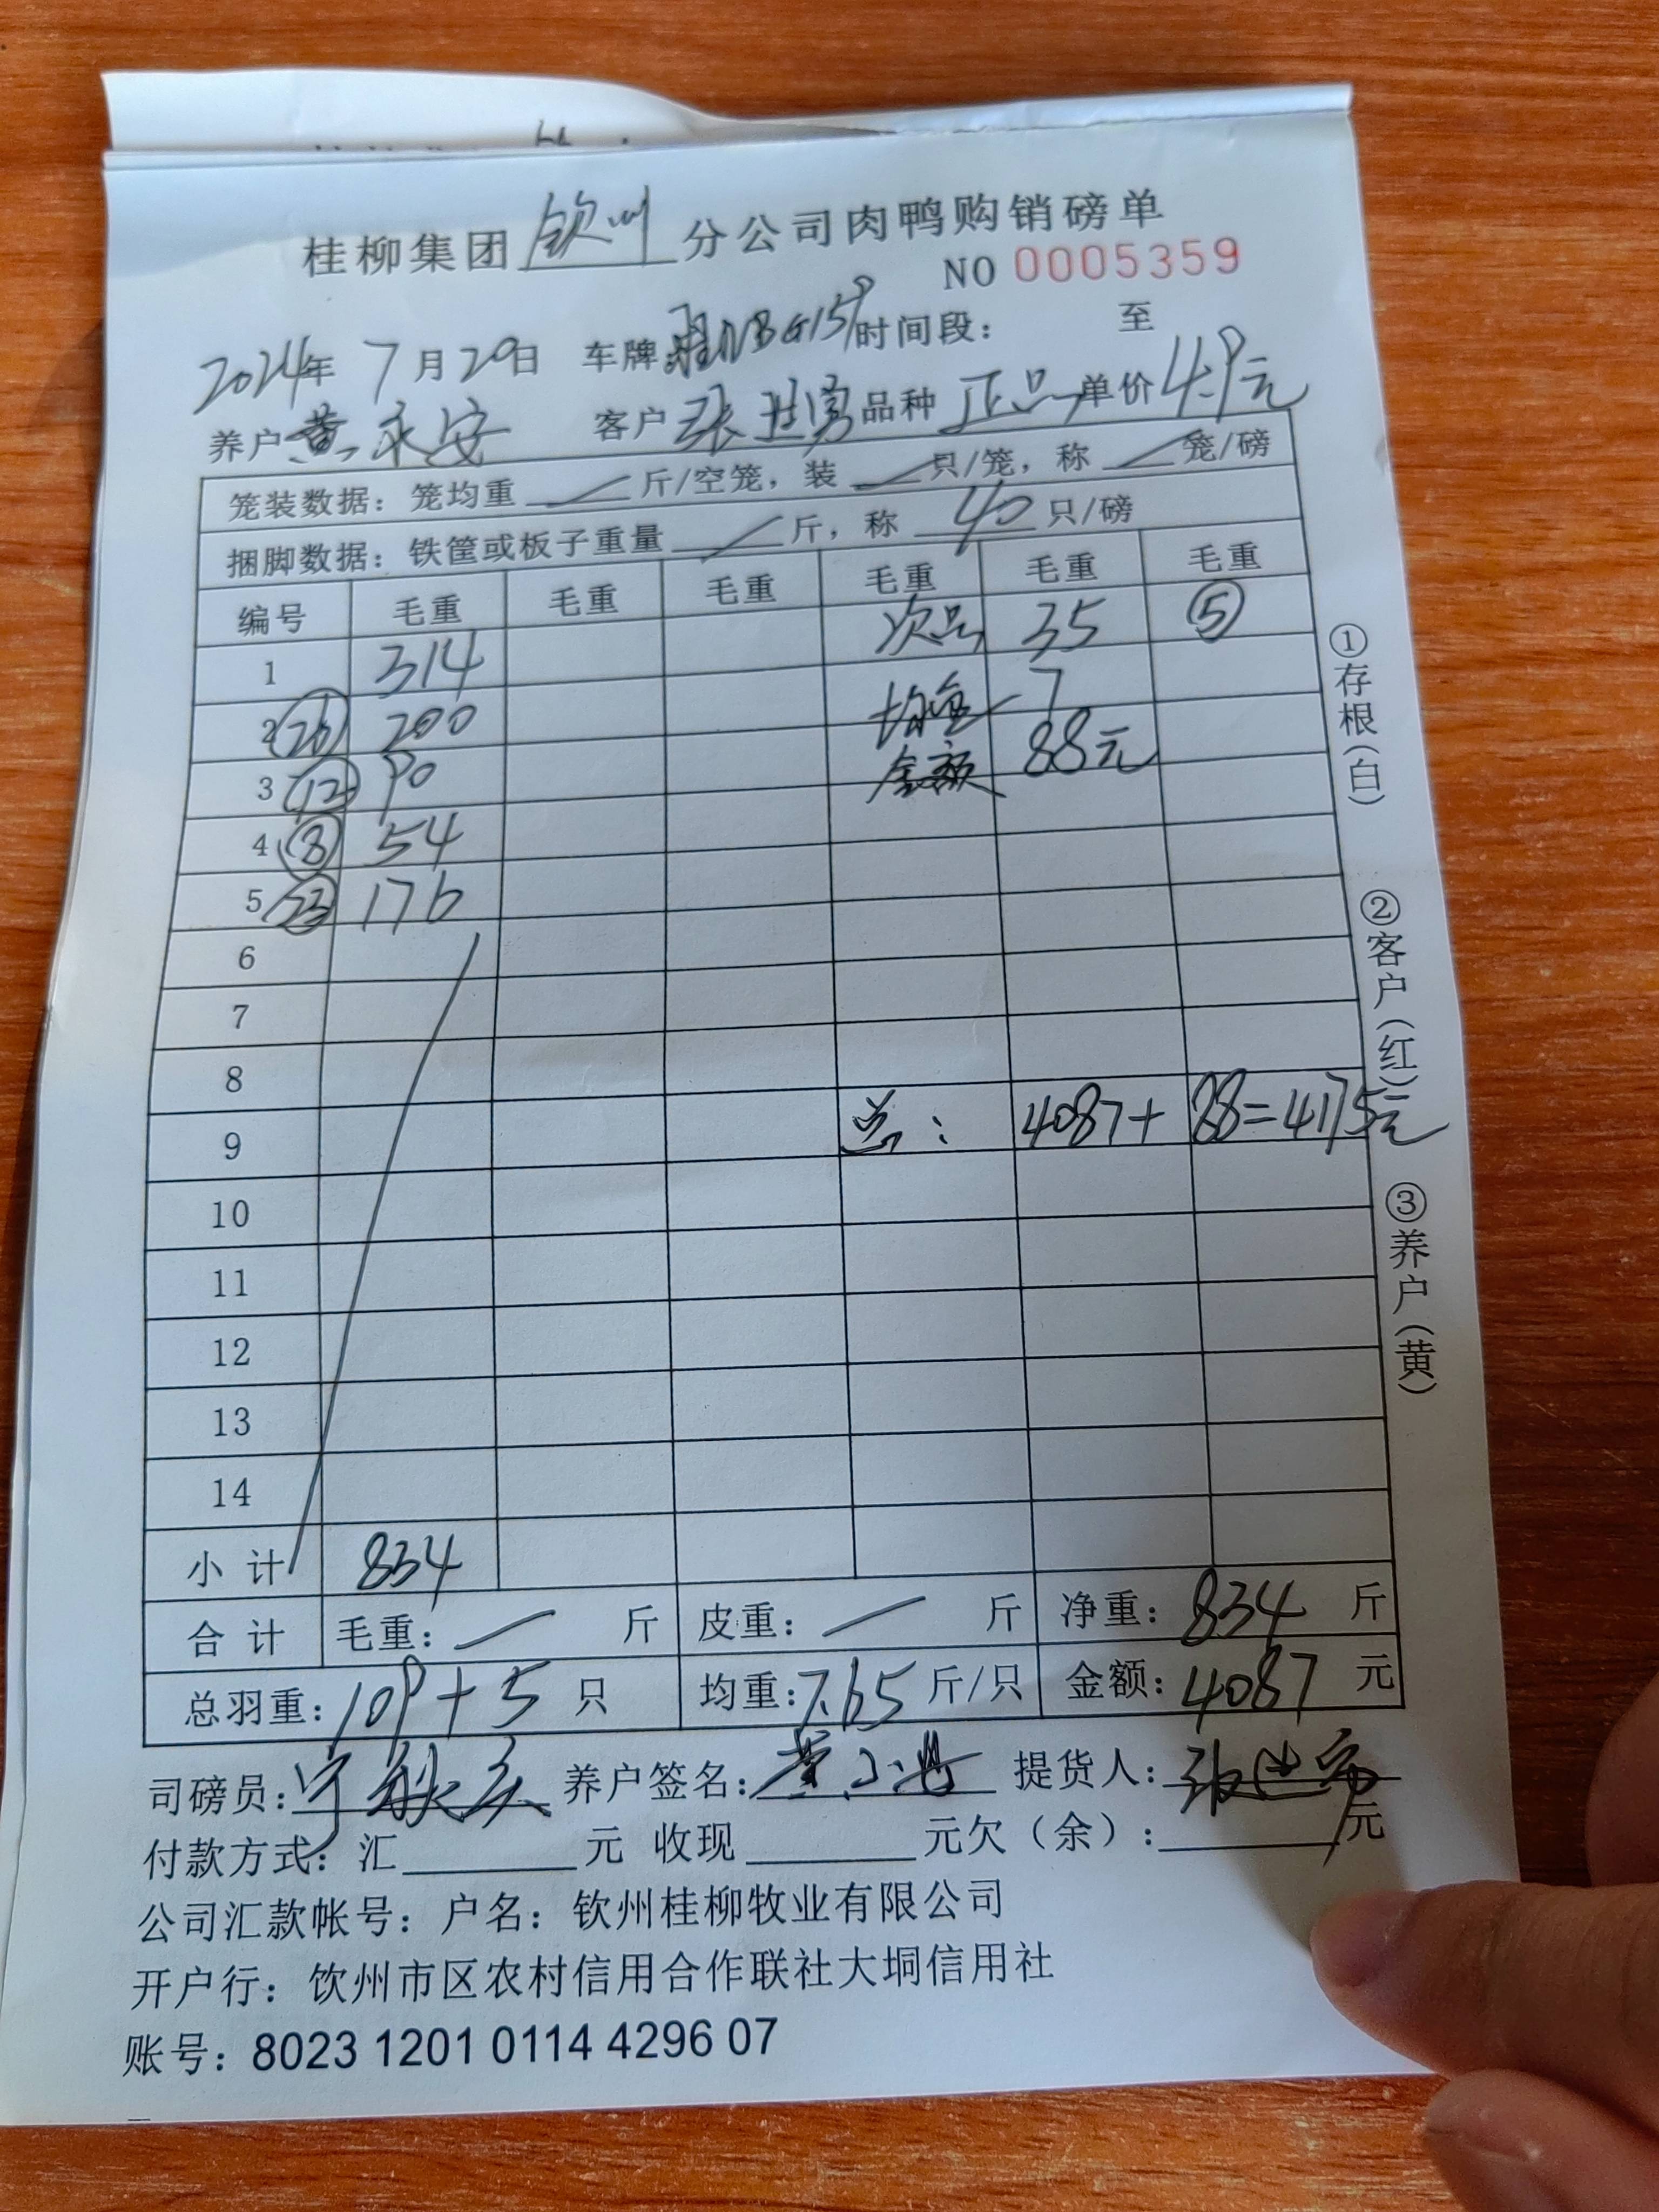 桂柳集团 钦州 分公司肉鸭购销磅单
NO 0005359
2024年 7月29日 车牌 时间段： 至
养户 黄永安 客户 张世勇 品种 正品 单价 4.9元
笼装数据：笼均重 斤/空笼，装 只/笼，称 笼/磅
捆脚数据：铁筐或板子重量 斤，称 40 只/磅
编号 毛重 毛重 毛重 毛重 毛重 毛重
1 314 次品 35 ⑤
2 ㉖ 200 均重 7
3 ⑫ 90 金额 88元
4 ⑧ 54
5 ㉓ 176
6
7
8
9 总： 4087+ 88=4175元
10
11
12
13
14
小计 834
合计 毛重： 斤 皮重： 斤 净重：834 斤
总羽重：109+5 只 均重：7.65 斤/只 金额：4087 元
司磅员： 养户签名： 提货人：张世勇
付款方式：汇 元 收现 元欠（余）： 元
公司汇款帐号：户名：钦州桂柳牧业有限公司
开户行：钦州市区农村信用合作联社大垌信用社
账号：8023 1201 0114 4296 07
①存根（白）
②客户（红）
③养户（黄）